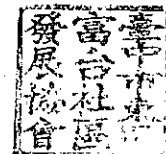 臺中市
富台社區
發展協會